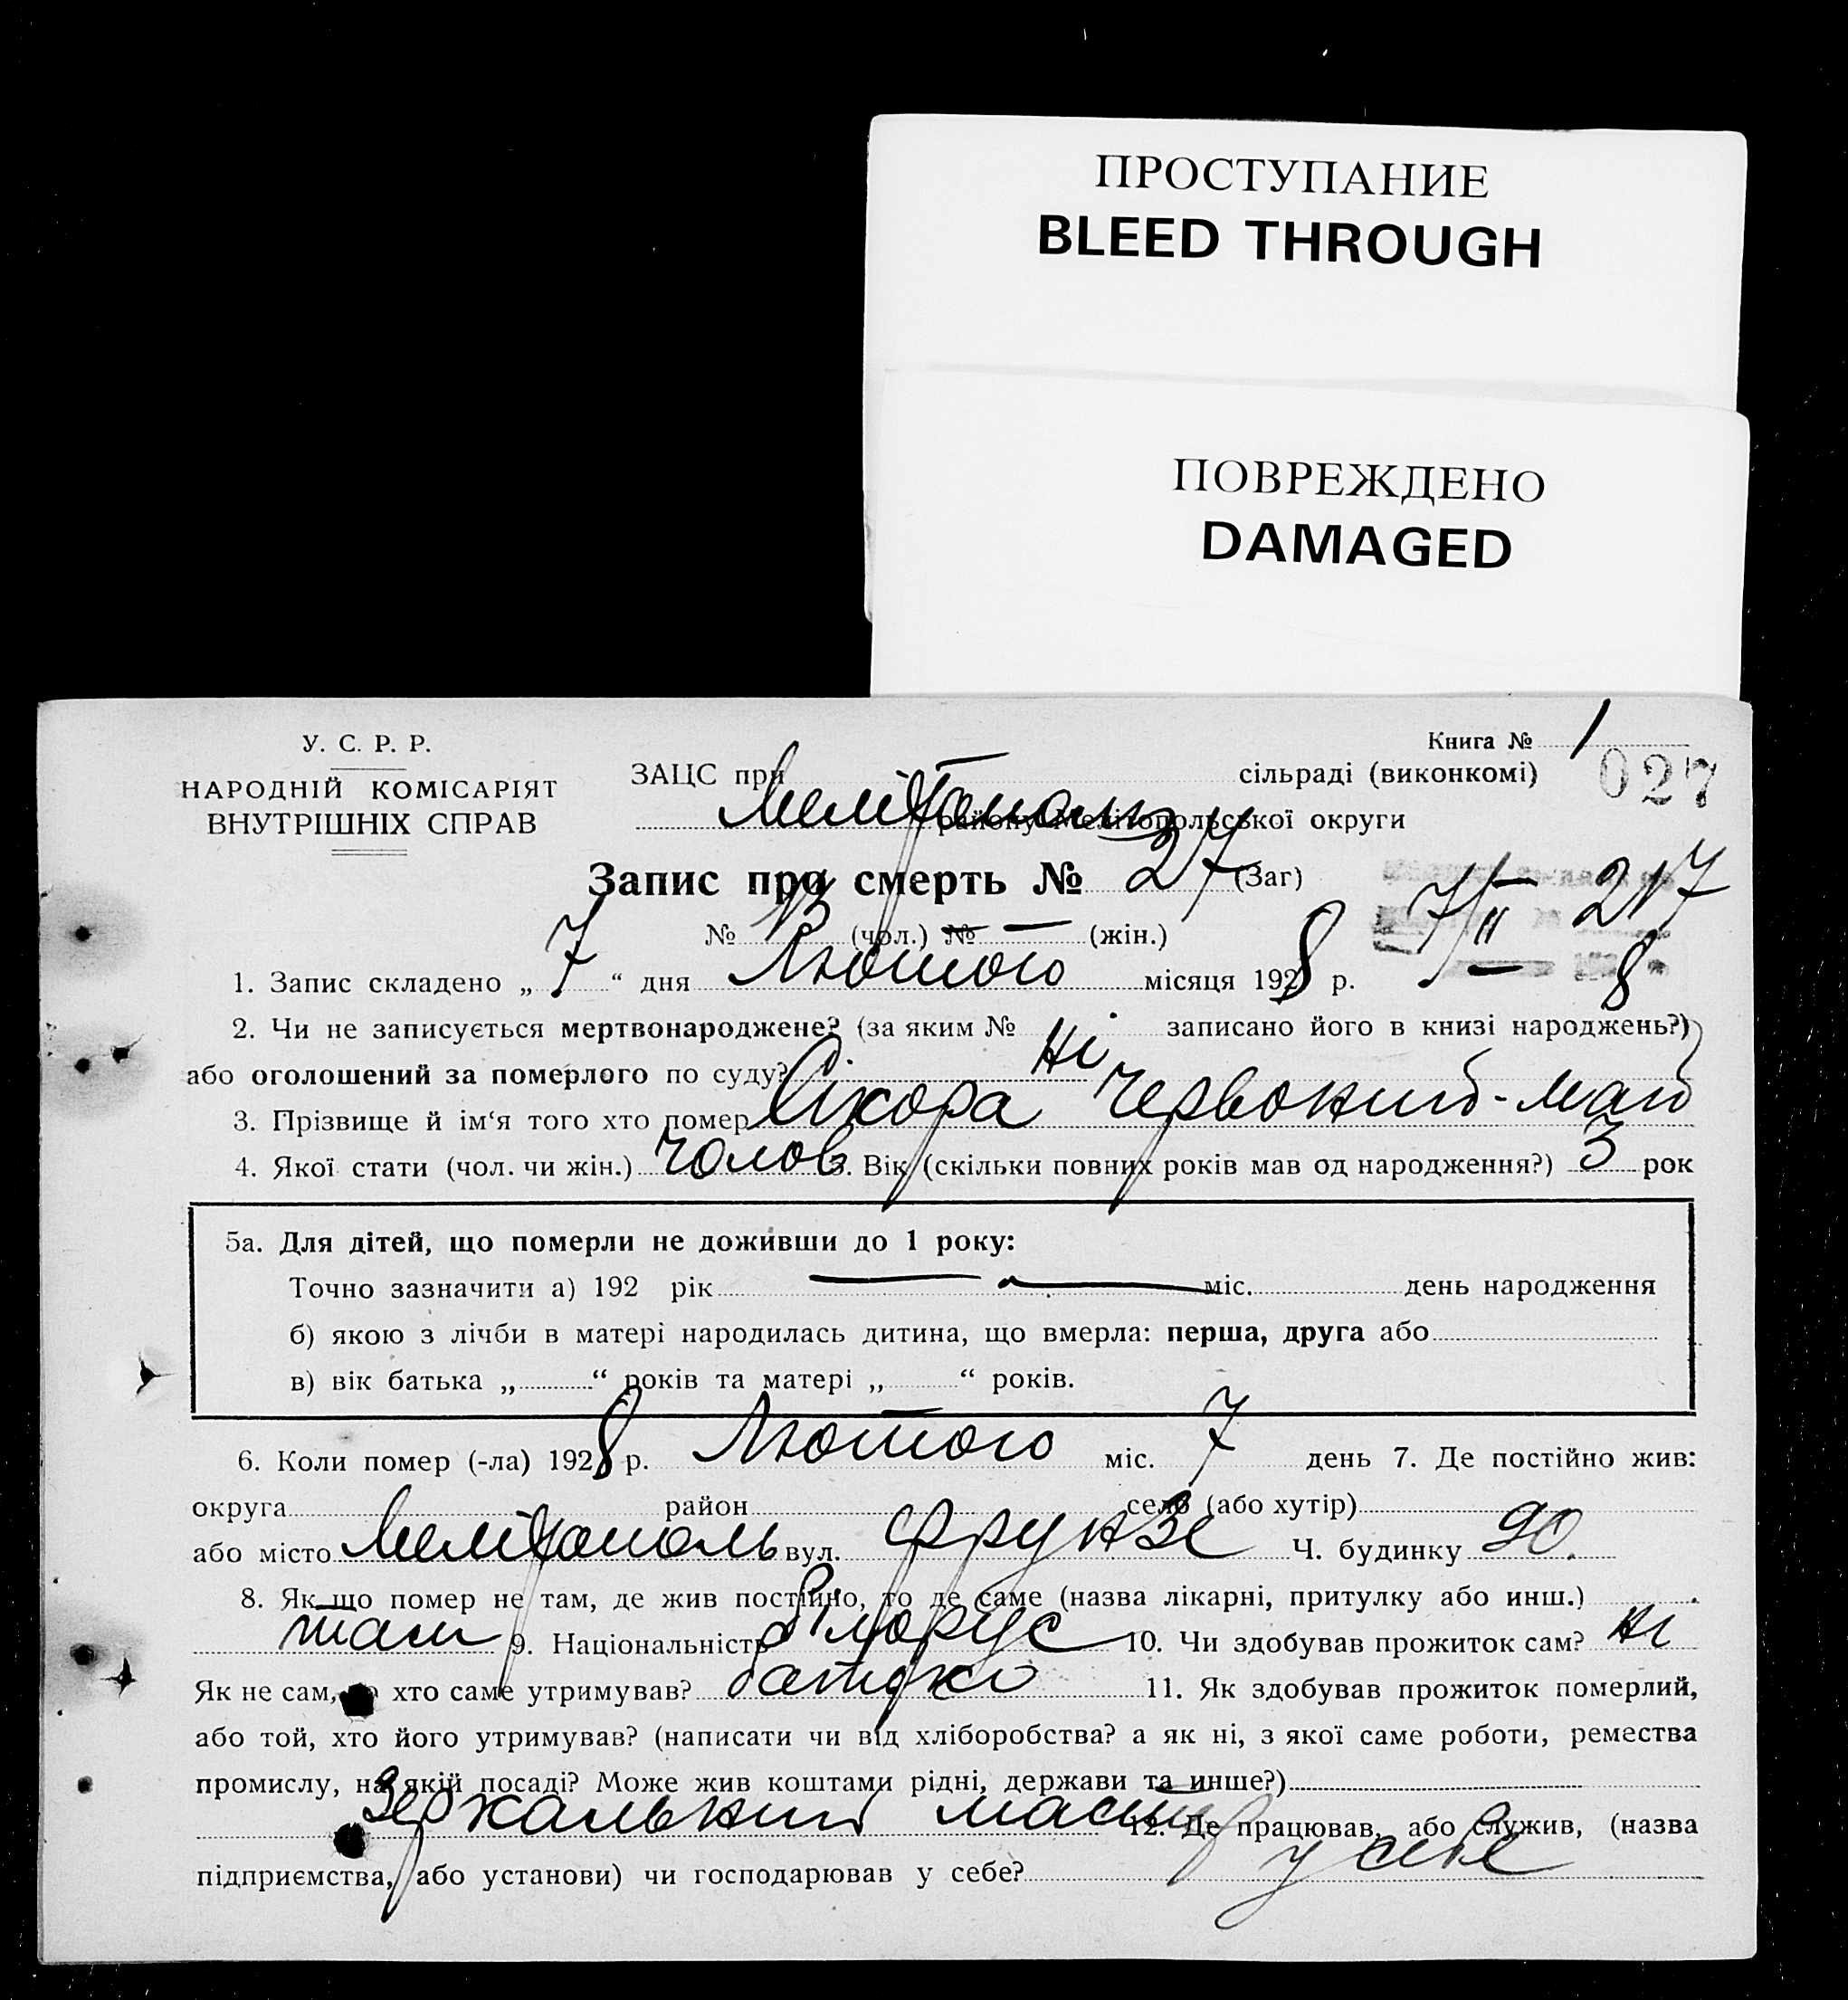 ПРОСТУПАНИЕ
BLEED THROUGH
ПОВРЕЖДЕНО
DAMAGED
У. С. Р. Р.
НАРОДНІЙ КОМІСАРІЯТ
ВНУТРІШНІХ СПРАВ
Книга № 1
027
ЗАЦС при сільраді (виконкомі)
району Мелітопольської округи
Запис про смерть № 27 (Заг)
7/II 217
№ 13 (чол.) № — (жін.)
8
1. Запис складено „ 7 “ дня Лютого місяця 1928 р.
2. Чи не записується мертвонароджене? (за яким № записано його в книзі народжень?)
або оголошений за померлого по суду? Ні
3. Прізвище й ім‘я того хто помер Сікора Червоний-май
4. Якої стати (чол. чи жін.) чолов 5. Вік (скільки повних років мав од народження?) 3 рок
5а. Для дітей, що померли не доживши до 1 року:
Точно зазначити а) 192 рік — — міс. день народження
б) якою з лічби в матері народилась дитина, що вмерла: перша, друга або
в) вік батька „ “ років та матері „ “ років.
6. Коли помер (-ла) 1928 р. Лютого міс. 7 день 7. Де постійно жив:
округа район село (або хутір)
або місто Мелітополь вул. Фрунзе Ч. будинку 90.
8. Як що помер не там, де жив постійно, то де саме (назва лікарні, притулку або инш.)
там 9. Національність білорус 10. Чи здобував прожиток сам? ні
Як не сам, хто саме утримував? батько 11. Як здобував прожиток померлий,
або той, хто його утримував? (написати чи від хліборобства? а як ні, з якої саме роботи, ремества
промислу, на якій посаді? Може жив коштами рідні, держави та инше?)
Зеркальний 12. Де працював, або служив, (назва
підприємства, або установи) чи господарював у себе? у себе